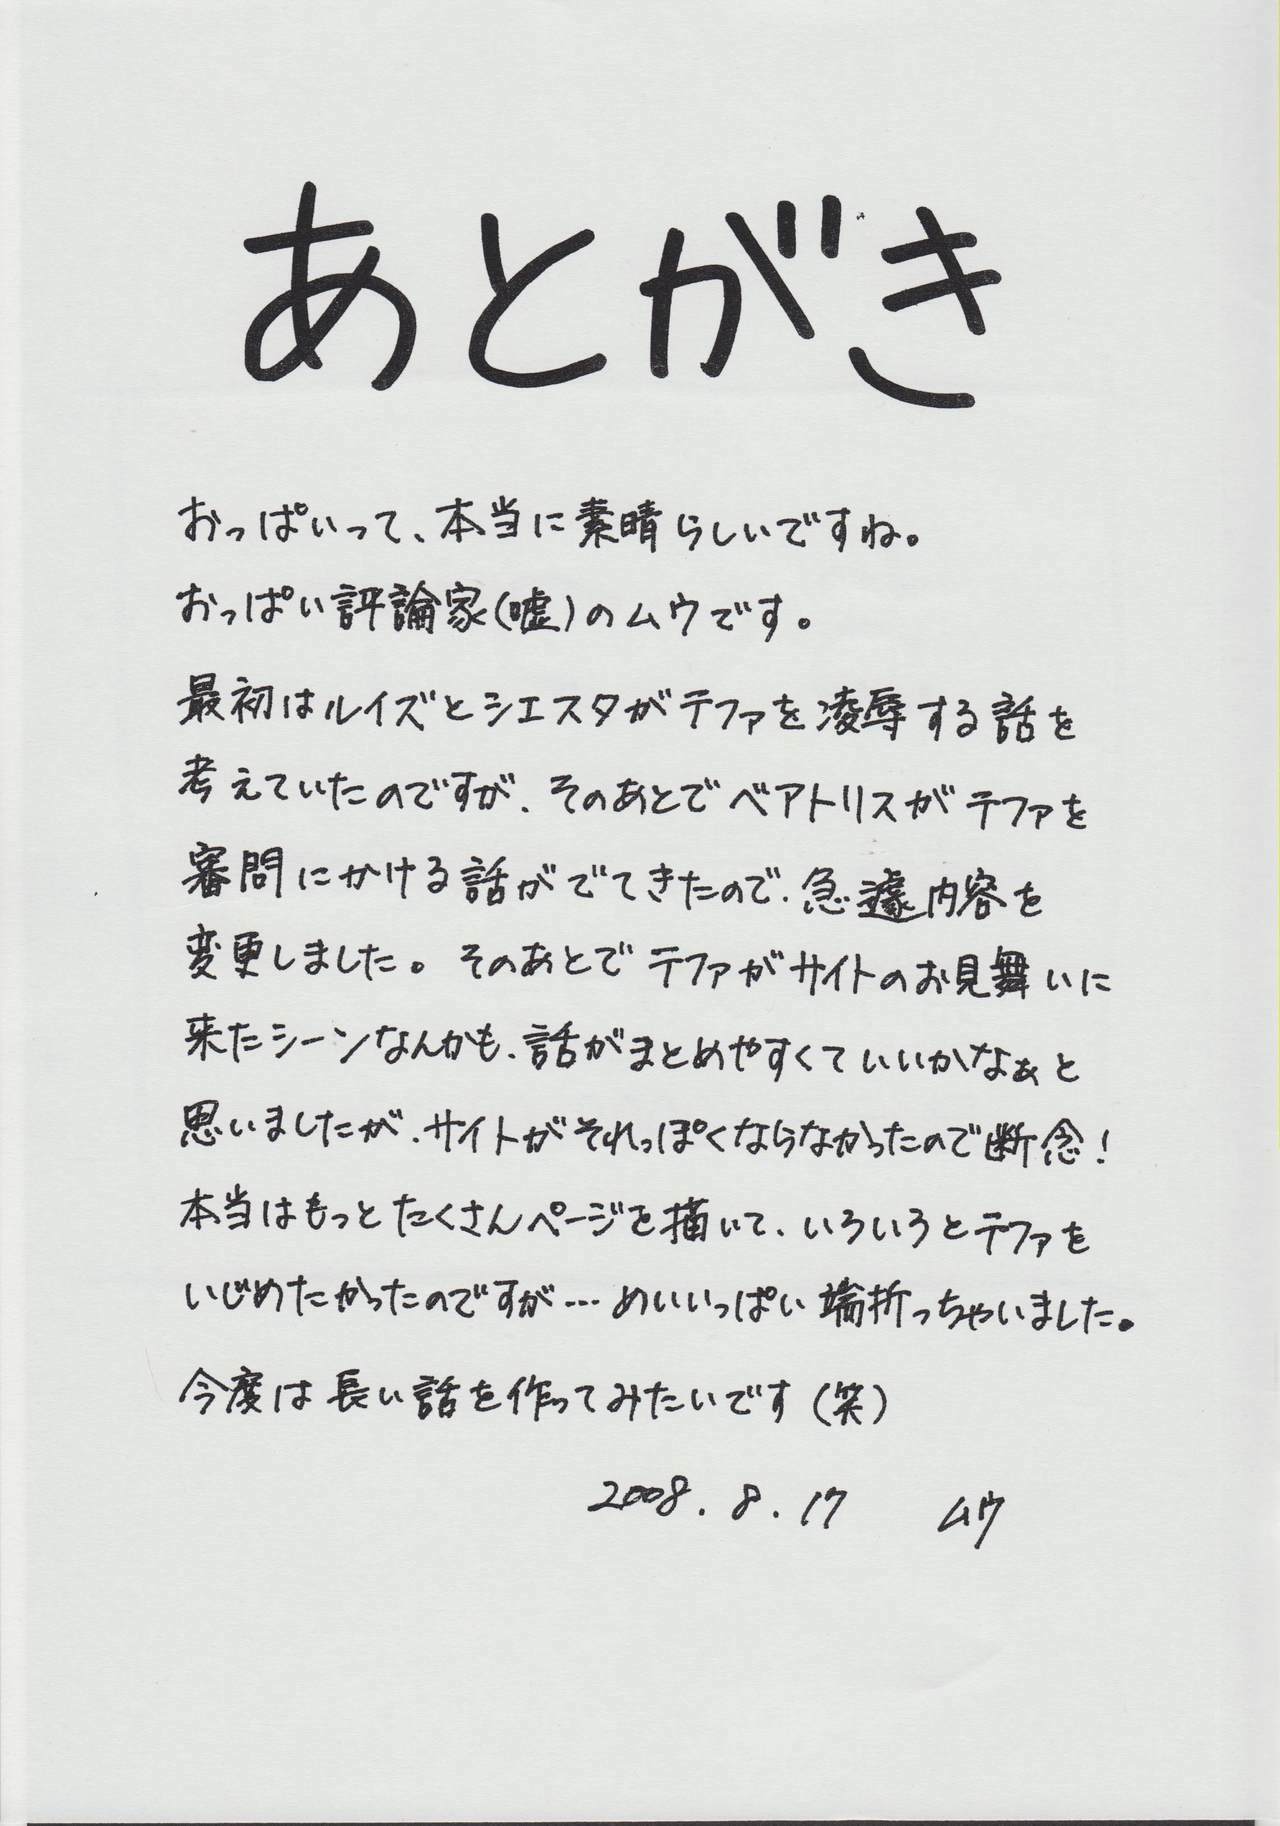 あとがき
おっぱいって、本当に素晴らしいですね。
おっぱい評論家(嘘)のムウです。
最初はルイズとシエスタがテファを凌辱する話を
考えていたのですが、そのあとでベアトリスがテファを
審問にかける話がでてきたので、急遽内容を
変更しました。そのあとでテファがサイトのお見舞いに
来たシーンなんかも、話がまとめやすくていいかなぁと
思いましたが、サイトがそれっぽくならなかったので断念!
本当はもっとたくさんページを描いて、いろいろとテファを
いじめたかったのですが…めいいっぱい端折っちゃいました。
今度は長い話を作ってみたいです(笑)
2008.8.17 ムウ